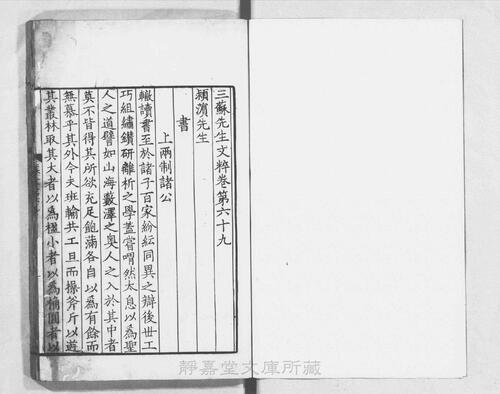 三蘇先生文粹卷第六十九
潁濵先生
書
上兩制諸公
轍讀書至於諸子百家紛紜同異之辯後世工
巧組繡鑽研離析之學蓋嘗喟然太息以為聖
人之道譬如山海藪澤之奥人之入於其中者
莫不皆得其所欲充足飽滿各自以為有餘而
無慕乎其外今夫班輸共工旦而操斧斤以遊
其叢林取其大者以為楹小者以為桷圓者以
靜嘉堂文庫所藏